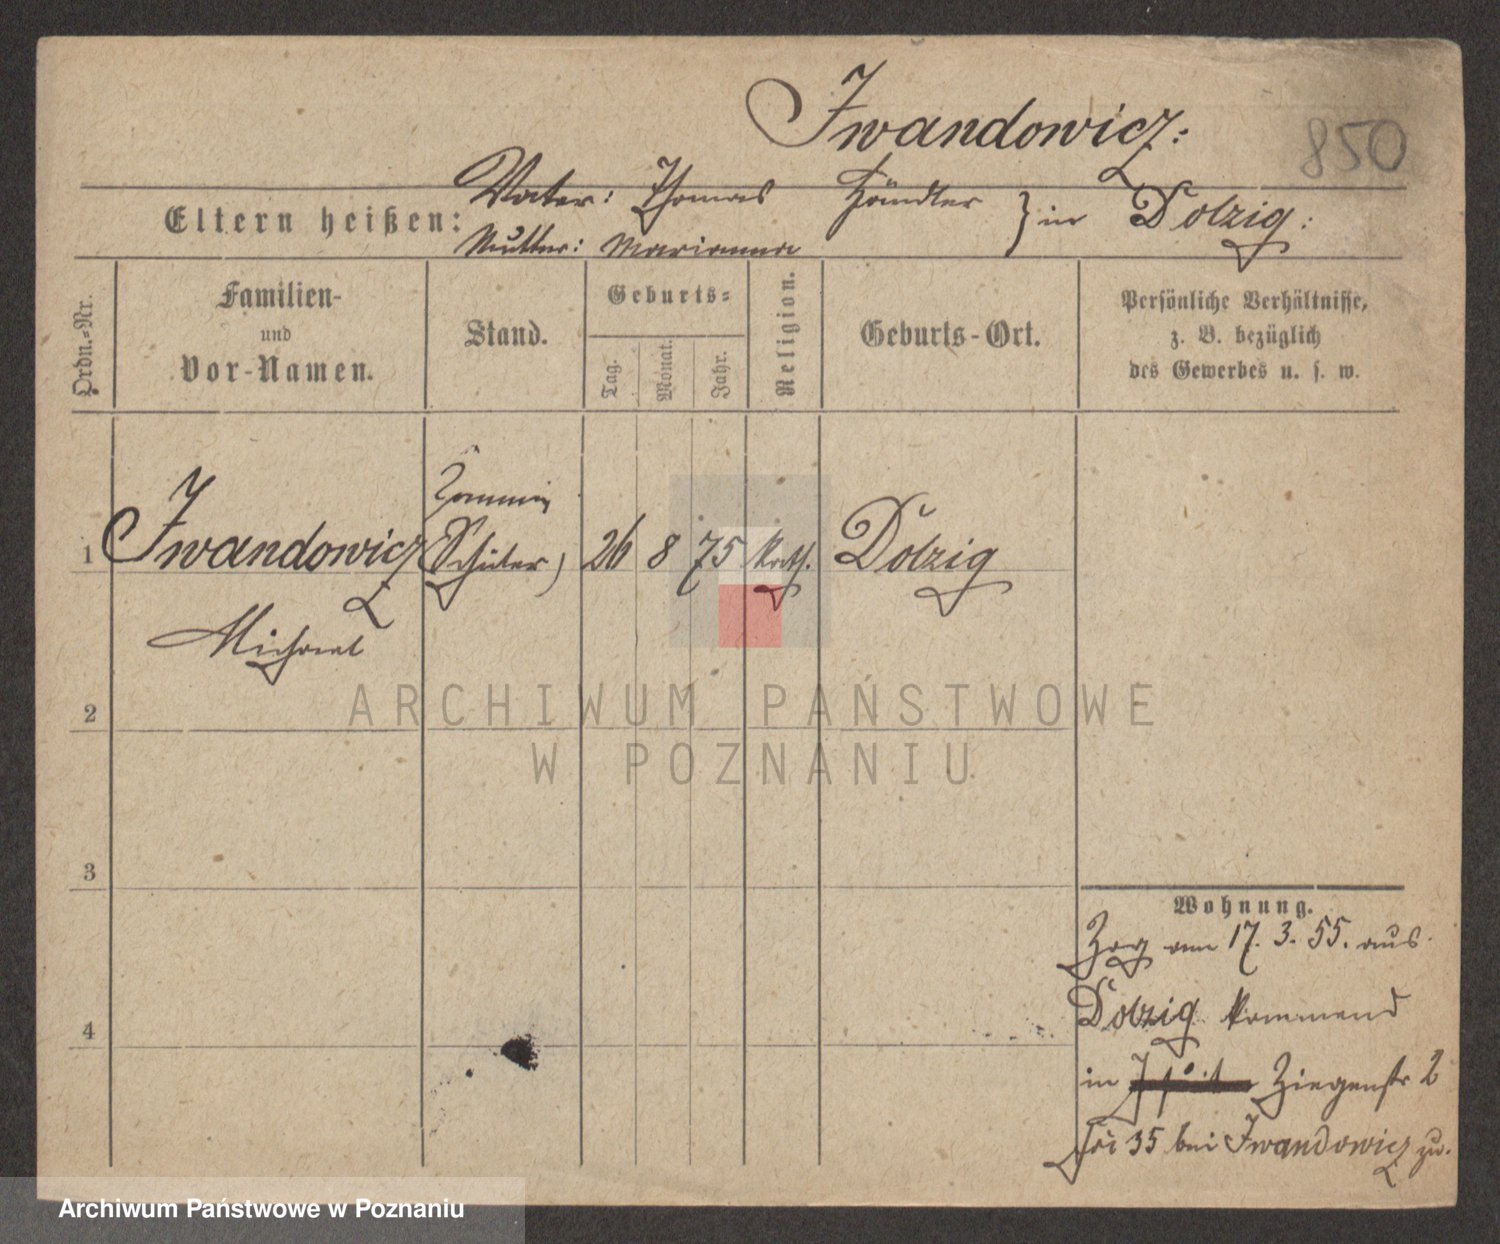 Iwandowicz:
850
Eltern heißen:
Vater: Thomas Händler
Mutter: Marianna
} in Dolzig:
Ordn.-Nr.
Familien-
und
Vor-Namen.
Stand.
Geburts-
Tag.
Monat.
Jahr.
Religion.
Geburts-Ort.
Persönliche Verhältnisse,
z. B. bezüglich
des Gewerbes u. s. w.
1 Iwandowicz Schüler) 26 8 75 kath. Dolzig
Michael
2
3
4
Wohnung.
Zog am 17. 3. 55. aus
Dolzig kommend
in Ziegenstr 2
35 bei Iwandowicz zu.
ARCHIWUM PAŃSTWOWE
W POZNANIU
Archiwum Państwowe w Poznaniu